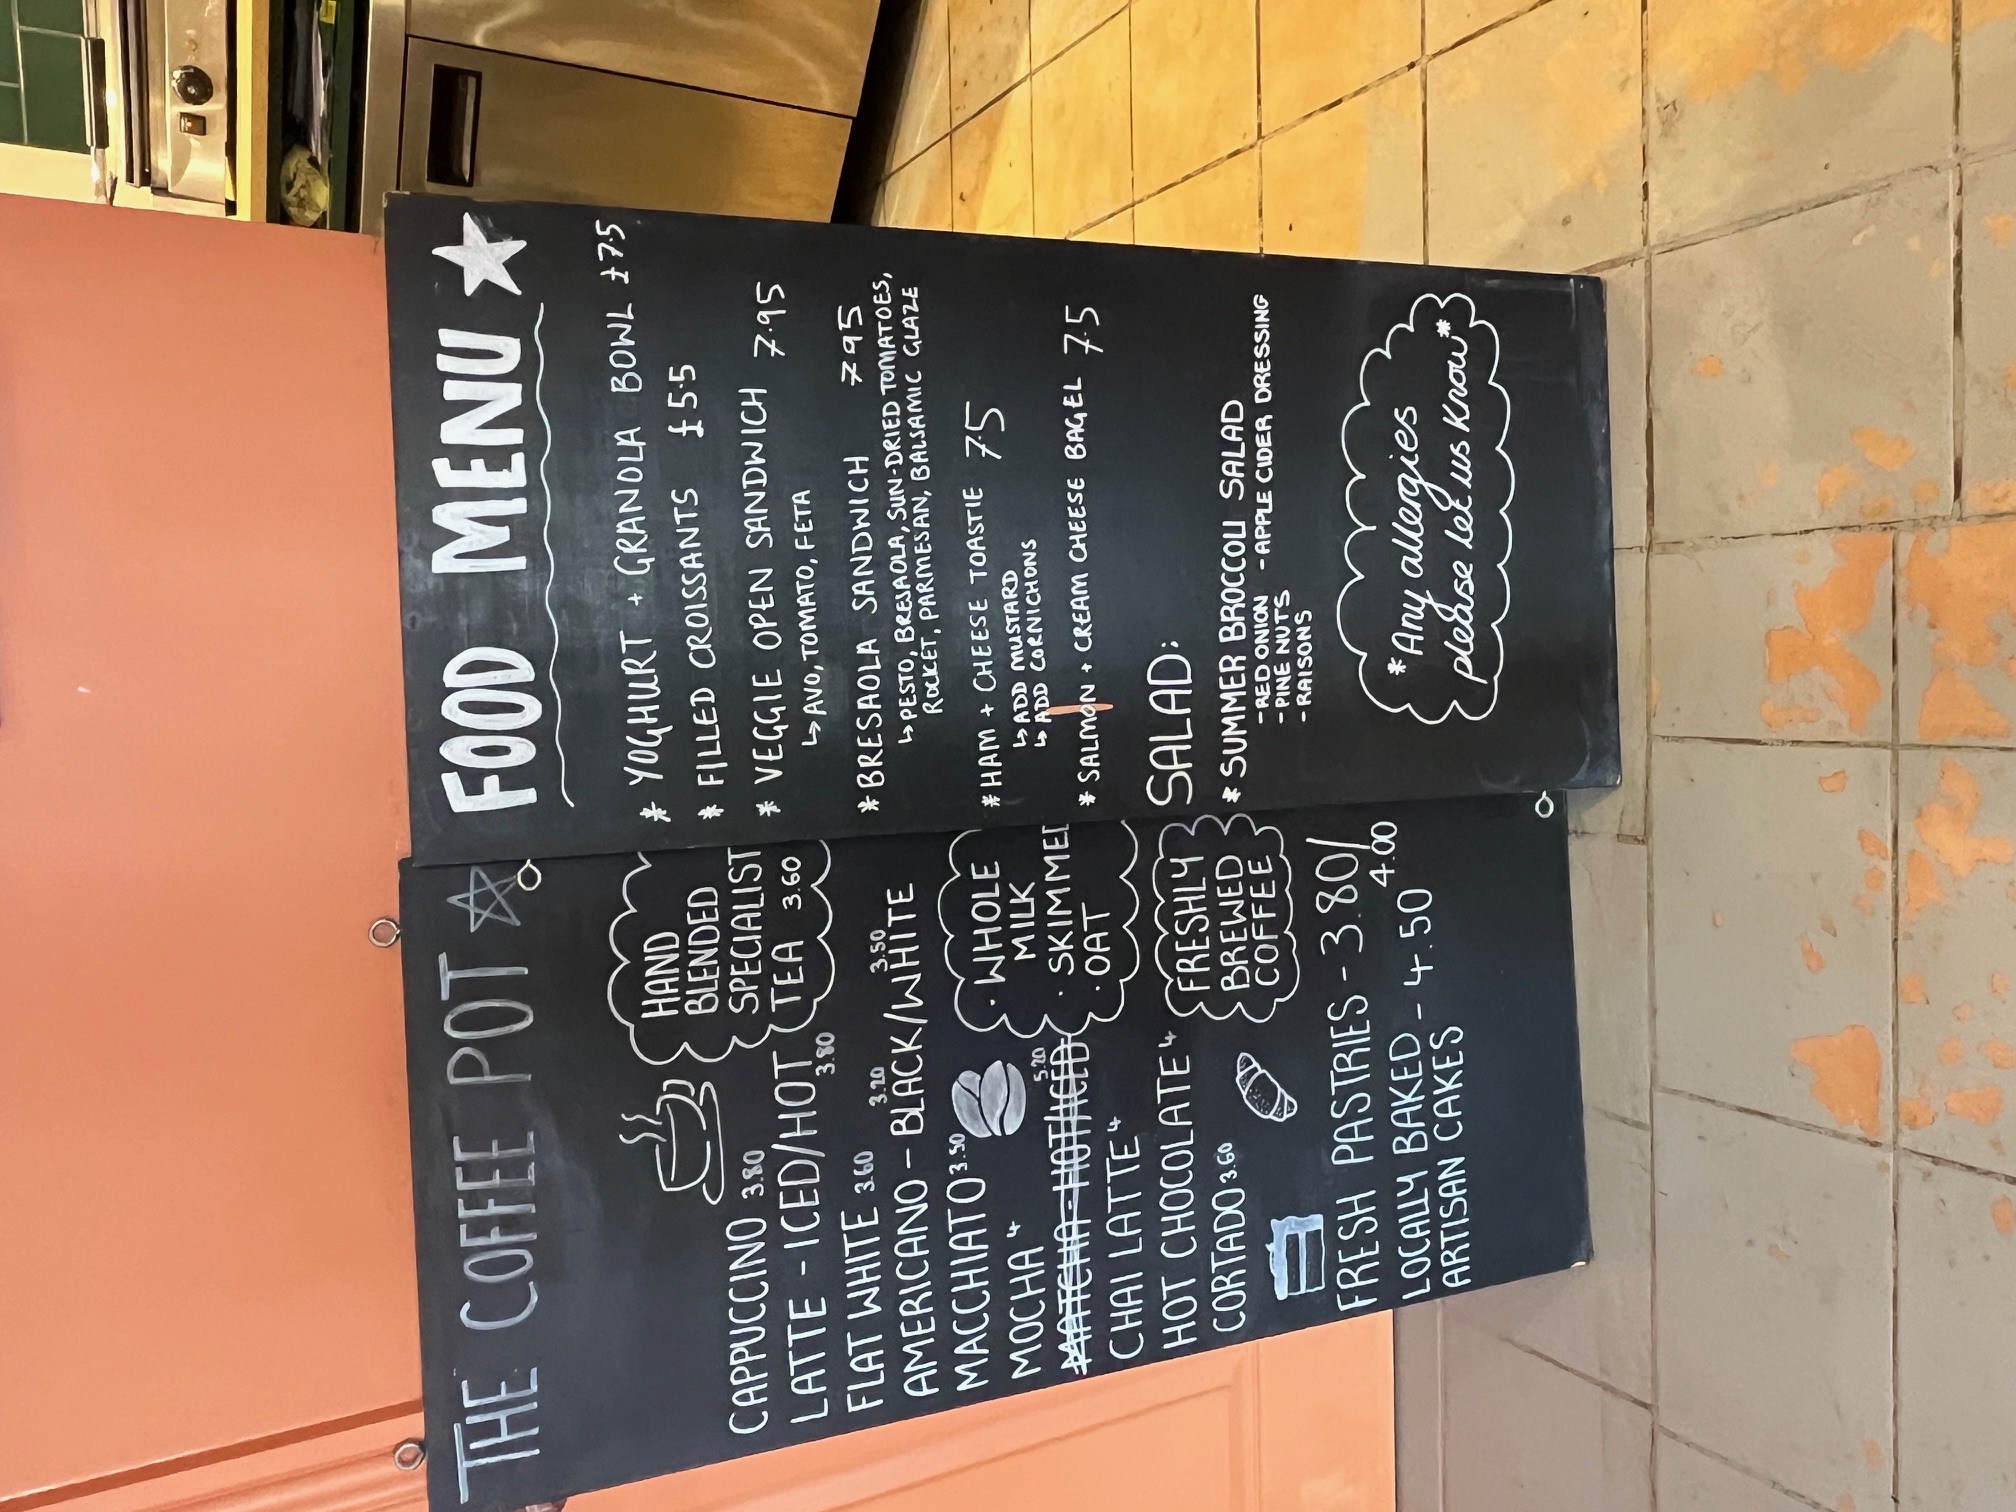 THE COFFEE POT
HAND
BLENDED
SPECIALIST
TEA 3.60
CAPPUCCINO 3.80
LATTE - ICED/HOT 3.80
FLAT WHITE 3.60
3.20 3.50
AMERICANO - BLACK/WHITE
MACCHIATO 3.50
MOCHA 4
MATCHA - HOT/ICED 5.20
CHAI LATTE 4
HOT CHOCOLATE 4
CORTADO 3.60
· WHOLE
MILK
· SKIMMED
· OAT
FRESHLY
BREWED
COFFEE
FRESH PASTRIES - 3.80/
4.00
LOCALLY BAKED - 4.50
ARTISAN CAKES
FOOD MENU
* YOGHURT + GRANOLA BOWL £7.5
* FILLED CROISSANTS £5.5
* VEGGIE OPEN SANDWICH 7.95
↳ AVO, TOMATO, FETA
* BRESAOLA SANDWICH 7.95
↳ PESTO, BRESAOLA, SUN-DRIED TOMATOES,
ROCKET, PARMESAN, BALSAMIC GLAZE
* HAM + CHEESE TOASTIE 7.5
↳ ADD MUSTARD
↳ ADD CORNICHONS
* SALMON + CREAM CHEESE BAGEL 7.5
SALAD:
* SUMMER BROCCOLI SALAD
- RED ONION - APPLE CIDER DRESSING
- PINE NUTS
- RAISONS
*Any allergies
please let us know*